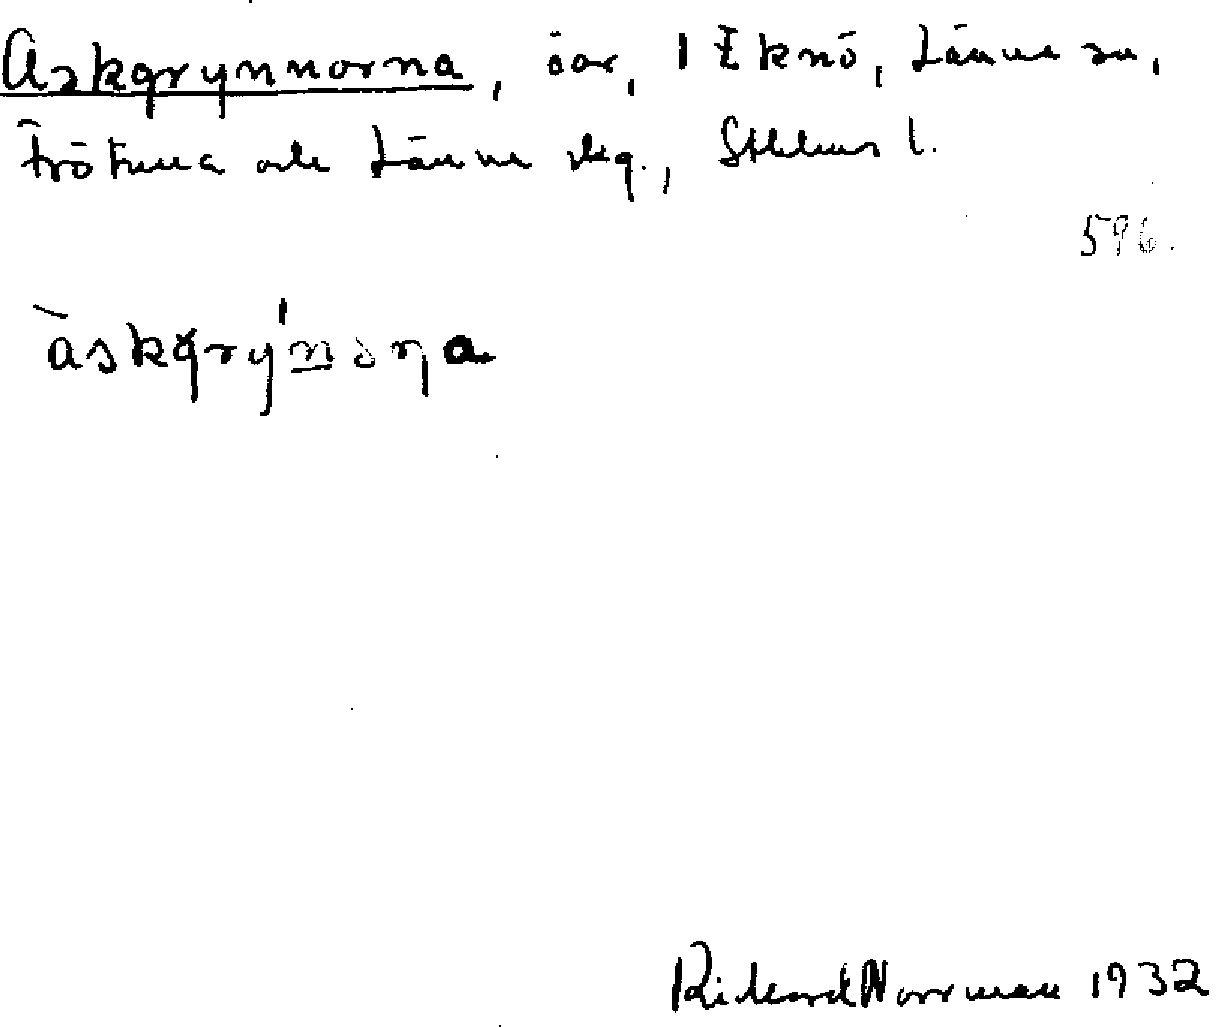 Askgrynnorna, öar, 1 Eknö, Länna sn,
Frötuna och Länna skg., Sthlms l.
596.
àskgrýnoṇa
Rickard Norrman 1932